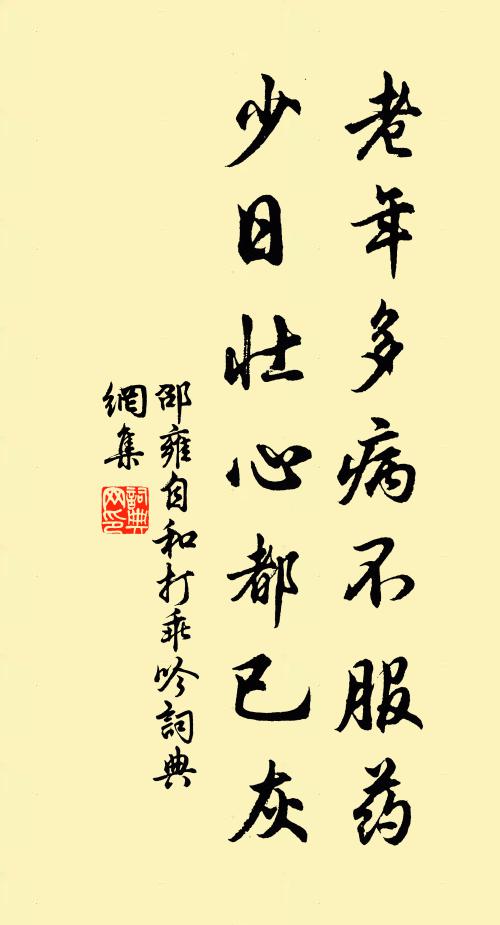 老年多病不服药
少日壮心都已灰
邵雍自和打乖吟詞典
網集
詞典
网印